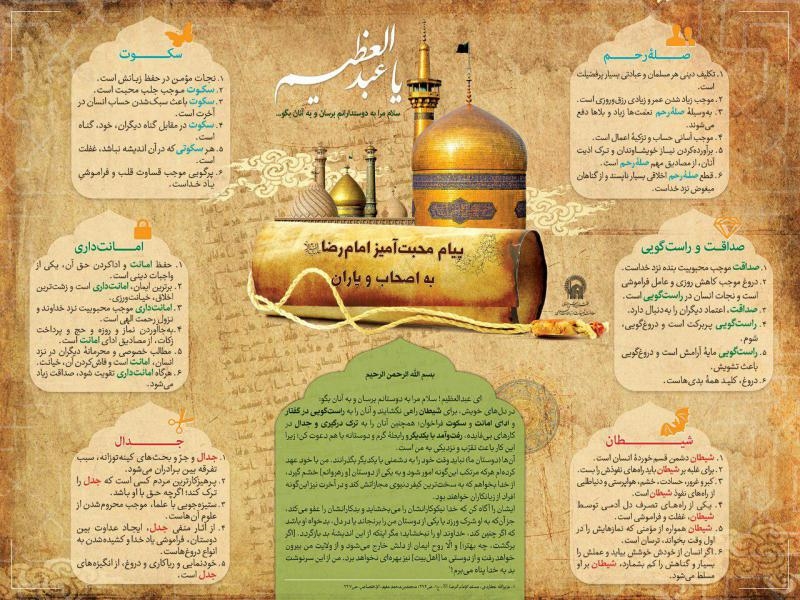 یا عبدالعظیم
سلام مرا به دوستدارانم برسان و به آنان بگو...
پیام محبت‌آمیز امام‌رضا
به اصحاب و یاران
صلهٔ‌رحم
۱. تکلیف دینی هر مسلمان و عبادتی بسیار پرفضیلت
است.
۲. موجب زیاد شدن عمر و زیادی رزق‌وروزی است.
۳. به‌وسیلهٔ صلهٔ رحم نعمت‌ها زیاد و بلاها دفع
می‌شوند.
۴. موجب آسانی حساب و تزکیهٔ اعمال است.
۵. برآورده‌کردن نیاز خویشاوندان و ترک اذیت
آنان، از مصادیق مهم صلهٔ‌رحم است.
۶. قطع صلهٔ‌رحم اخلاقی بسیار ناپسند و از گناهان
مبغوض نزد خداست.
سکوت
۱. نجات مؤمن در حفظ زبانش است.
۲. سکوت موجب جلب محبت است.
۳. سکوت باعث سبک‌شدن حساب انسان در
آخرت است.
۴. سکوت در مقابل گناه دیگران، خود، گناه
است.
۵. هر سکوتی که در آن اندیشه نباشد، غفلت
است.
۶. پرگویی موجب قساوت قلب و فراموشی
یاد خداست.
صداقت و راست‌گویی
۱. صداقت موجب محبوبیت بنده نزد خداست.
۲. دروغ موجب کاهش روزی و عامل فراموشی
است و نجات انسان در راست‌گویی است.
۳. صداقت، اعتماد دیگران را به‌دنبال دارد.
۴. راست‌گویی پربرکت است و دروغ‌گویی،
شوم.
۵. راست‌گویی مایهٔ آرامش است و دروغ‌گویی
باعث تشویش.
۶. دروغ، کلید همهٔ بدی‌هاست.
امانت‌داری
۱. حفظ امانت و اداکردن حق آن، یکی از
واجبات دینی است.
۲. برترین ایمان، امانت‌داری است و زشت‌ترین
اخلاق، خیانت‌ورزی.
۳. امانت‌داری موجب محبوبیت نزد خداوند و
نزول رحمت الهی است.
۴. به‌جاآوردن نماز و روزه و حج و پرداخت
زکات، از مصادیق ادای امانت است.
۵. مطالب خصوصی و محرمانهٔ دیگران در نزد
انسان، امانت است و فاش‌کردن آن، خیانت.
۶. هرگاه امانت‌داری تقویت شود، صداقت زیاد
می‌شود.
شیطان
۱. شیطان دشمن قسم‌خوردهٔ انسان است.
۲. برای غلبه بر شیطان باید راه‌های نفوذش را بست.
۳. کبر و غرور، حسادت، خشم، هواپرستی و دنیاطلبی
از راه‌های نفوذ شیطان است.
۴. یکی از راه‌های تصرف دل آدمی توسط
شیطان، غفلت و فراموشی است.
۵. شیطان همواره از مؤمنی که نمازهایش را در
اول وقت بخواند، ترسان است.
۶. اگر انسان از خودش خوشش بیاید و عملش را
بسیار و گناهش را کم بشمارد، شیطان بر او
مسلط می‌شود.
جدال
۱. جدال و جرّ و بحث‌های کینه‌توزانه، سبب
تفرقه بین برادران می‌شود.
۲. پرهیزکارترین مردم کسی است که جدال را
ترک کند؛ اگرچه حق با او باشد.
۳. ستیزه‌جویی با علما، موجب محروم‌شدن از
علوم آن‌هاست.
۴. از آثار منفی جدل، ایجاد عداوت بین
دوستان، فراموشی یاد خدا و کشیده‌شدن به
انواع دروغ‌هاست.
۵. خودنمایی و ریاکاری و دروغ، از انگیزه‌های
جدل است.
بسم الله الرحمن الرحیم
ای عبدالعظیم! سلام مرا به دوستانم برسان و به آنان بگو:
در دل‌های خویش، برای شیطان راهی نگشایند و آنان را به راست‌گویی در گفتار
و ادای امانت و سکوت فراخوان؛ همچنین آنان را به ترک درگیری و جدال در
کارهای بی‌فایده، رفت‌وآمد با یکدیگر و رابطهٔ گرم و دوستانه با هم دعوت کن؛ زیرا
این کار باعث تقرّب و نزدیکی به من است.
آن‌ها (دوستان ما) نباید وقت خود را به دشمنی با یکدیگر بگذرانند. من با خود عهد
کرده‌ام هرکه مرتکب این‌گونه امور شود و به یکی از دوستان [و رهروانم] خشم گیرد،
از خدا بخواهم که به سخت‌ترین کیفر دنیوی مجازاتش کند و در آخرت نیز این‌گونه
افراد از زیانکاران خواهند بود.
ایشان را آگاه کن که خدا نیکوکارانشان را می‌بخشاید و بدکارانشان را عفو می‌کند،
جز آن‌که به او شرک ورزد یا یکی از دوستان من را برنجاند یا در دل، بدخواه او باشد
که اگر چنین کند، خداوند او را نبخشاید؛ مگر اینکه از این اندیشهٔ بد بازگردد. [اگر
برگشت، چه بهتر؛] و الّا روح ایمان از دلش خارج می‌شود و از ولایت من بیرون
خواهد رفت و از دوستی ما [اهل‌بیت] نیز بهره‌ای نخواهد برد. من از این سرنوشت
بد به خدا پناه می‌برم!